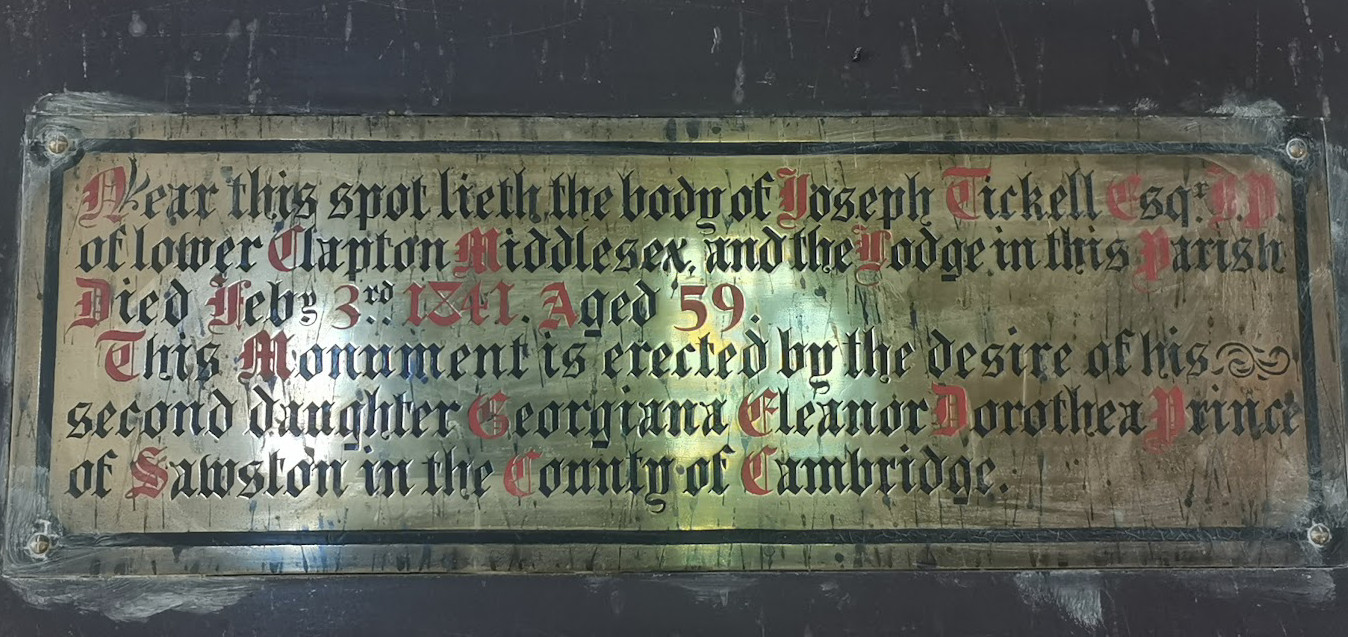 Near this spot lieth the body of Joseph Tickell Esqr. J.P.
of lower Clapton Middlesex, and the Lodge in this Parish
Died Feby 3rd 1841. Aged 59.
This Monument is erected by the desire of his
second daughter Georgiana Eleanor Dorothea Prince
of Sawston in the County of Cambridge.